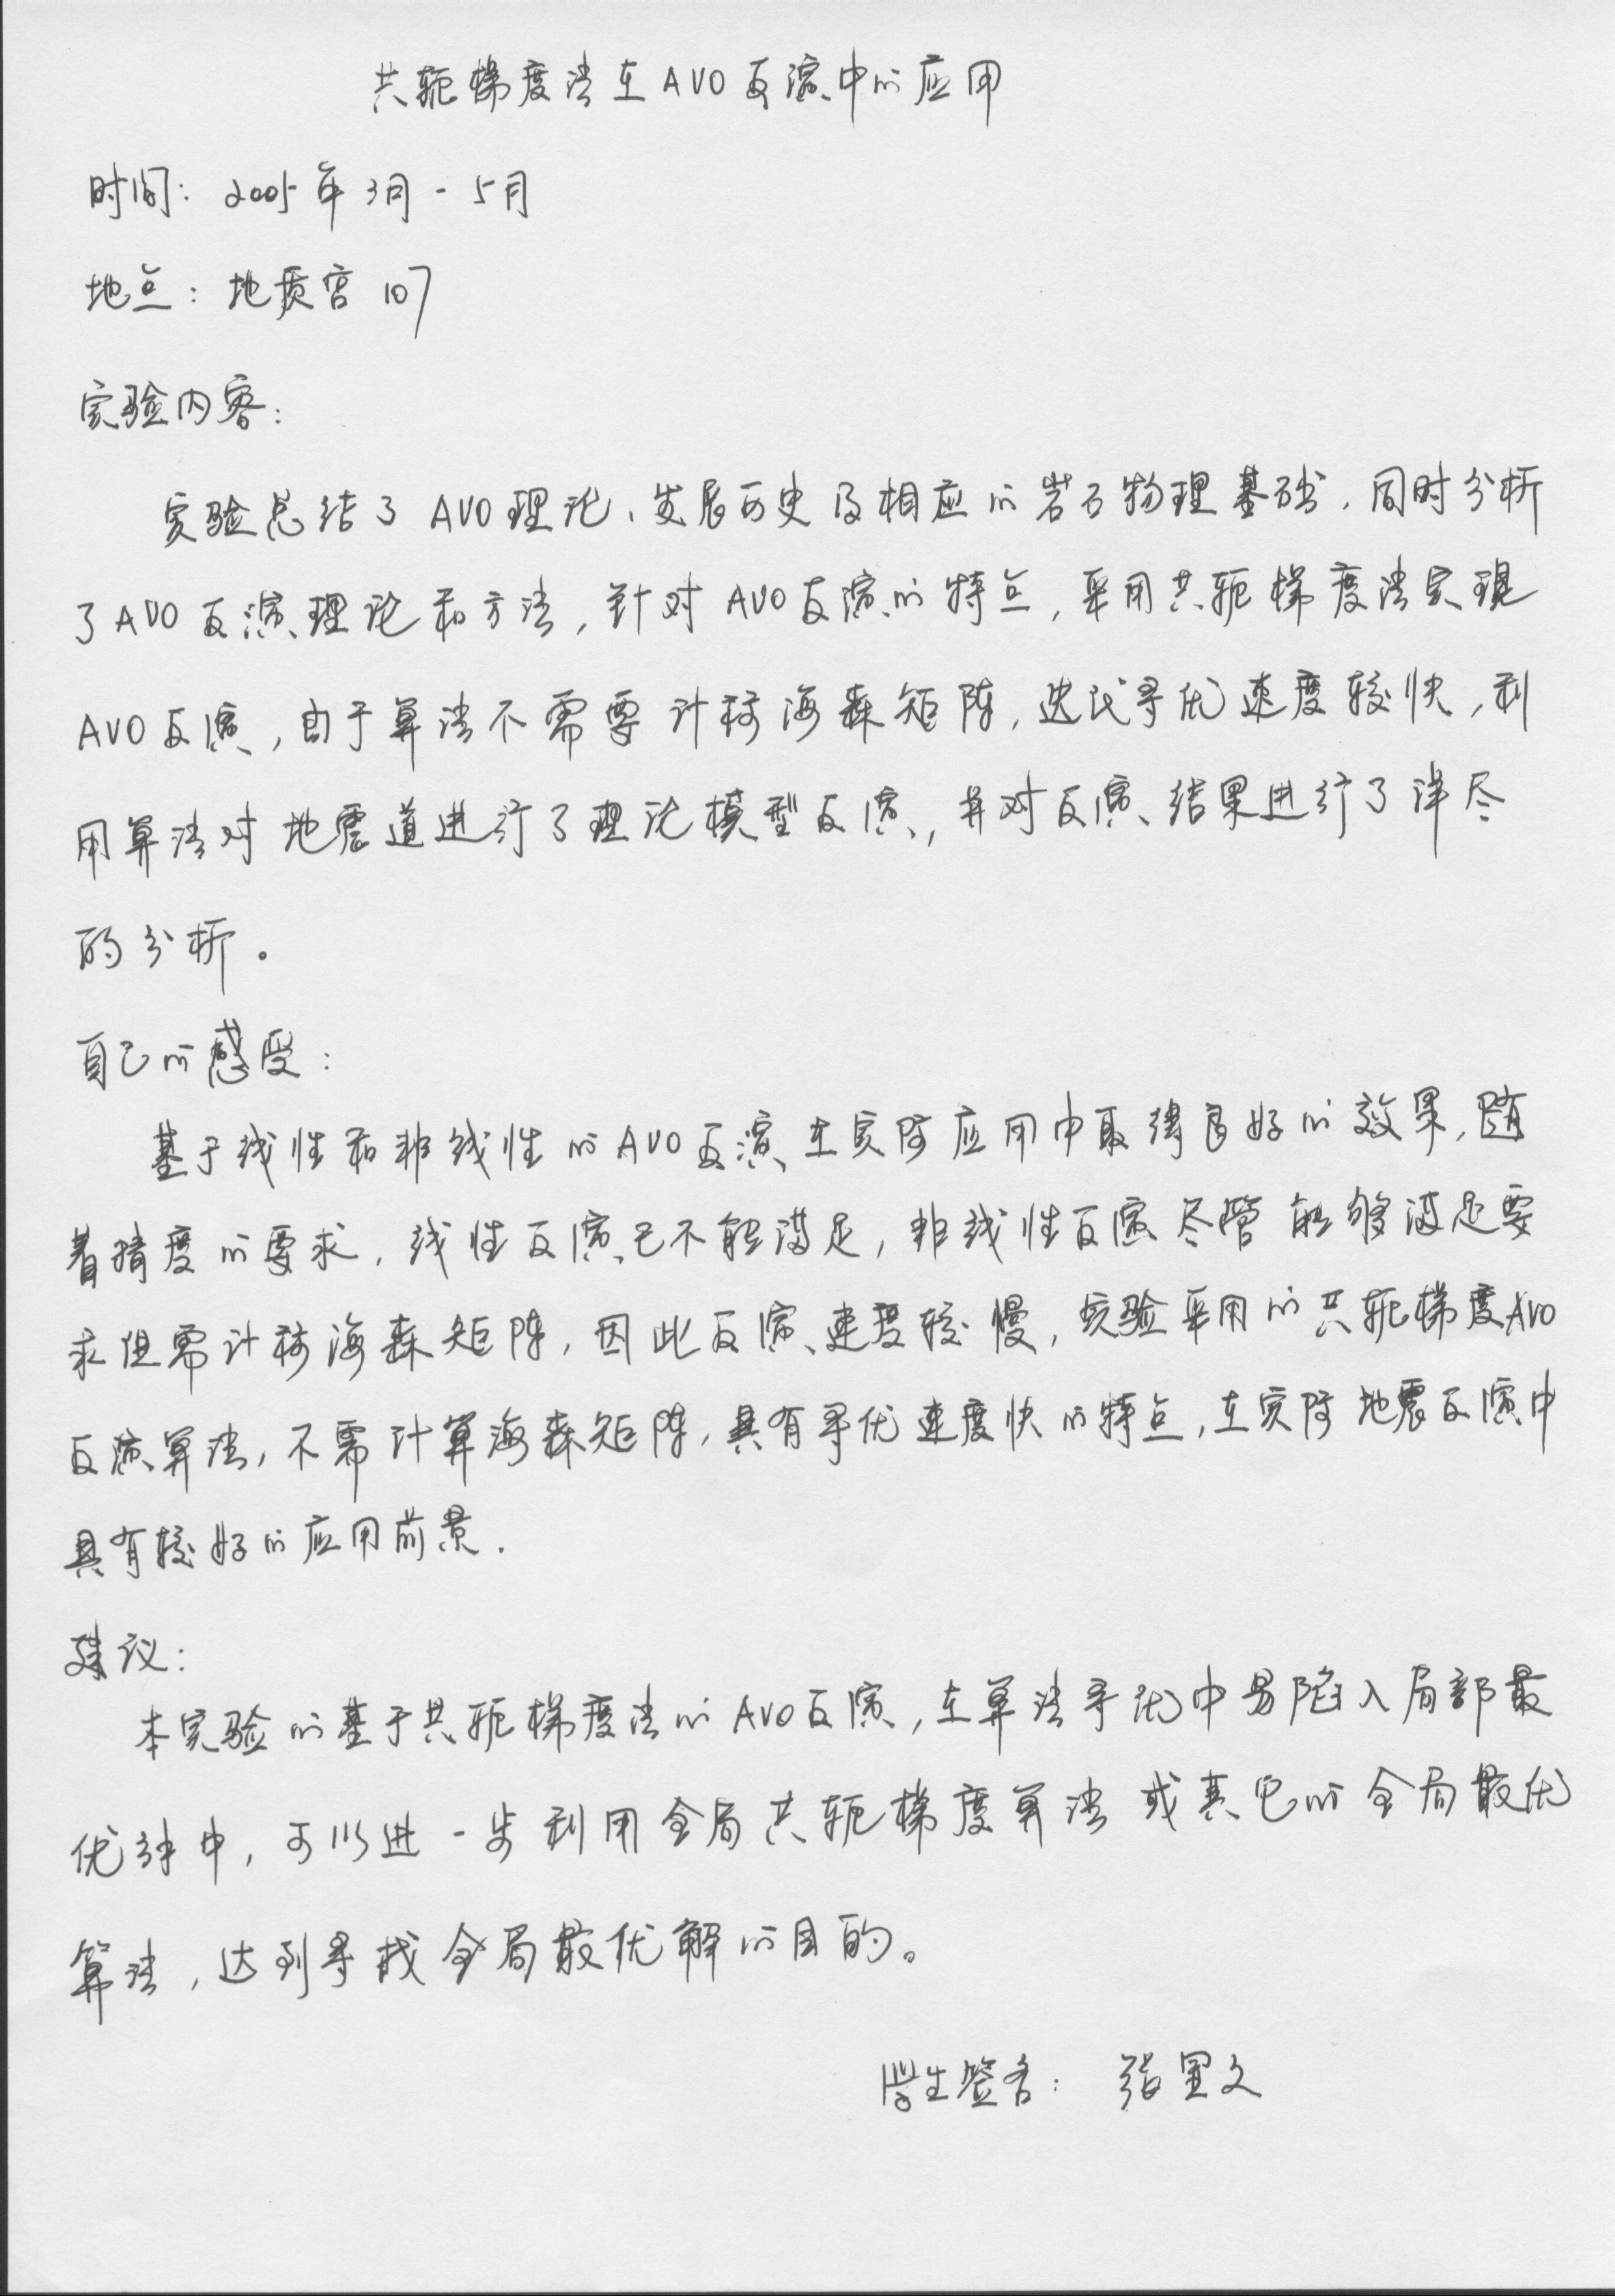 共轭梯度法在AVO反演中的应用
时间：2005年3月-5月
地点：地质宫107
实验内容：
实验总结了AVO理论、发展历史及相应的岩石物理基础，同时分析
了AVO反演理论和方法，针对AVO反演的特点，采用共轭梯度法实现
AVO反演，由于算法不需要计称海森矩阵，迭代寻优速度较快，利
用算法对地震道进行了理论模型反演，并对反演结果进行了详尽
的分析。
自己的感受：
基于线性和非线性的AVO反演在实际应用中取得良好的效果，随
着精度的要求，线性反演已不能满足，非线性反演尽管能够满足要
求但需计称海森矩阵，因此反演速度较慢，实验采用的共轭梯度AVO
反演算法，不需计算海森矩阵，具有寻优速度快的特点，在实际地震反演中
具有较好的应用前景.
建议：
本实验的基于共轭梯度法的AVO反演，在算法寻优中易陷入局部最
优解中，可以进一步利用全局共轭梯度算法或其它的全局最优
算法，达到寻找全局最优解的目的。
学生签名：张里文